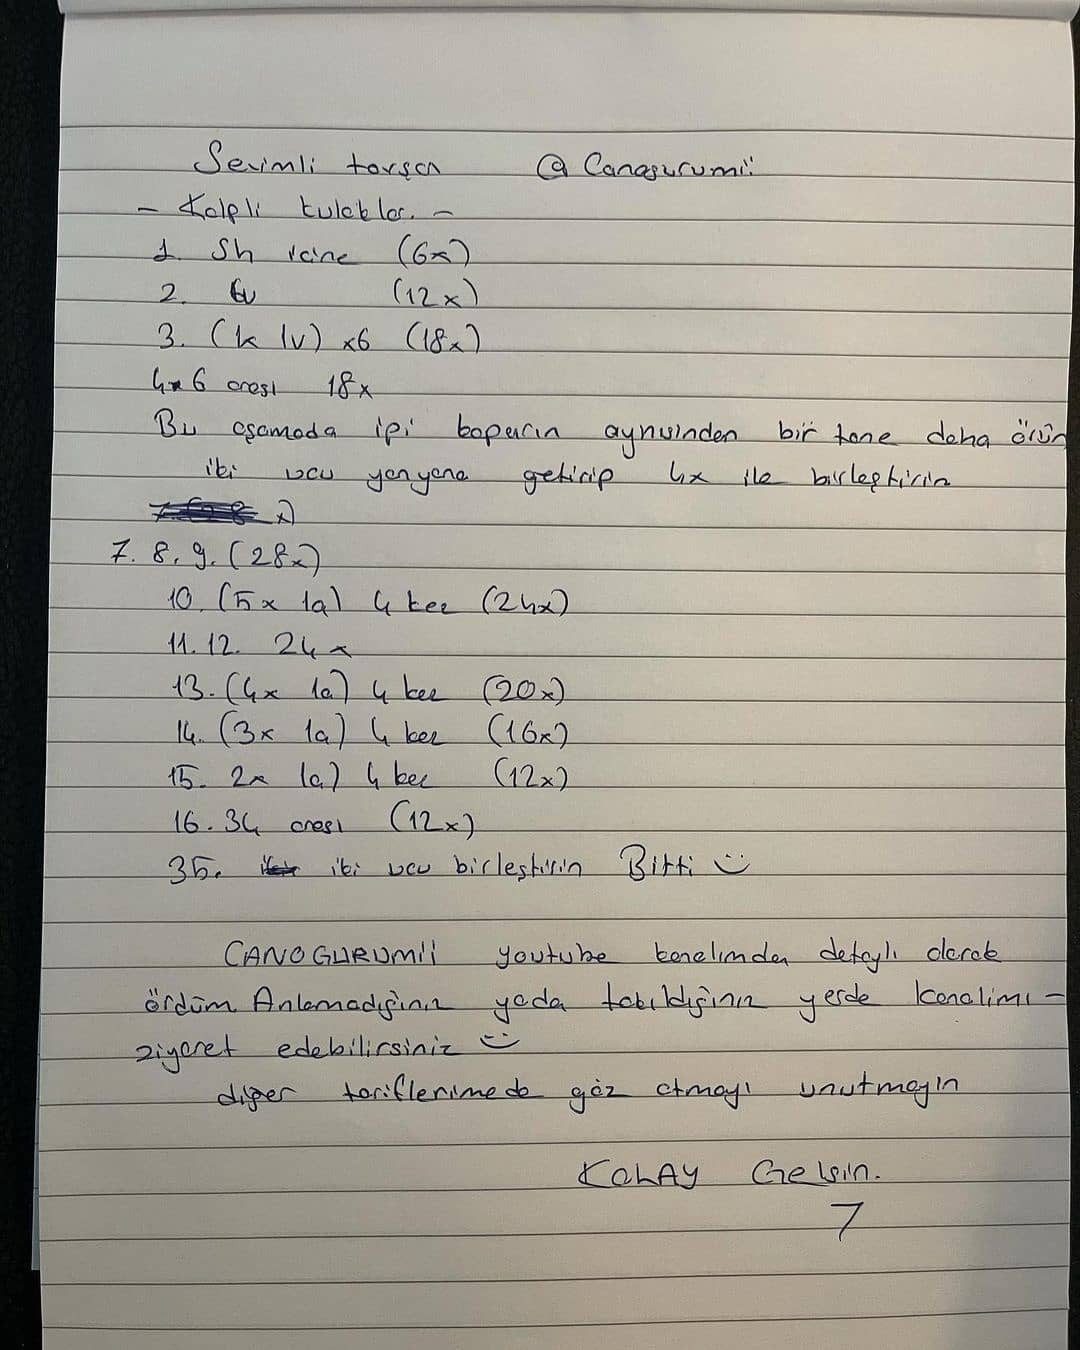 Sevimli tavşan @Canagurumii
- Kalpli kulaklar. -
1. Sh içine (6x)
2. 6v (12x)
3. (x 1v) x6 (18x)
4 6 arası 18x
Bu aşamada ipi koparın aynısından bir tane daha örün
iki ucu yanyana getirip 4x ile birleştirin
7. 8. 9. (28x)
10. (5x 1a) 4 kez (24x)
11. 12. 24x
13. (4x 1a) 4 kez (20x)
14. (3x 1a) 4 kez (16x)
15. 2x 1a) 4 kez (12x)
16. 34 arası (12x)
35. iki ucu birleştirin Bitti
CANAGURUMii youtube kanalımdan detaylı olarak
ördüm Anlamadığınız yada takıldığınız yerde kanalımı -
ziyaret edebilirsiniz
diğer tariflerimede göz atmayı unutmayın
KOLAY Gelsin.
7